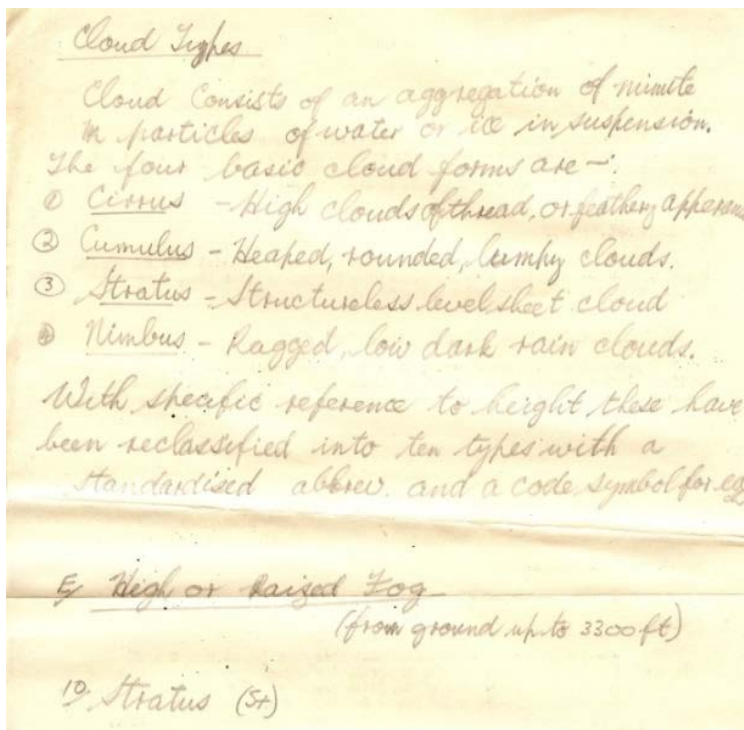 Cloud Types
Cloud Consists of an aggregation of minute
particles of water or ice in suspension.
The four basic cloud forms are -:
① Cirrus - High clouds of thread, or feathery appearan
② Cumulus - Heaped, rounded, lumpy clouds.
③ Stratus - Structureless level sheet cloud
④ Nimbus - Ragged, low dark rain clouds.
With specific reference to height these have
been reclassified into ten types with a
standardised abbrev. and a code symbol for ea
E/ High or Raised Fog
(from ground up to 3300 ft)
10. Stratus (St)